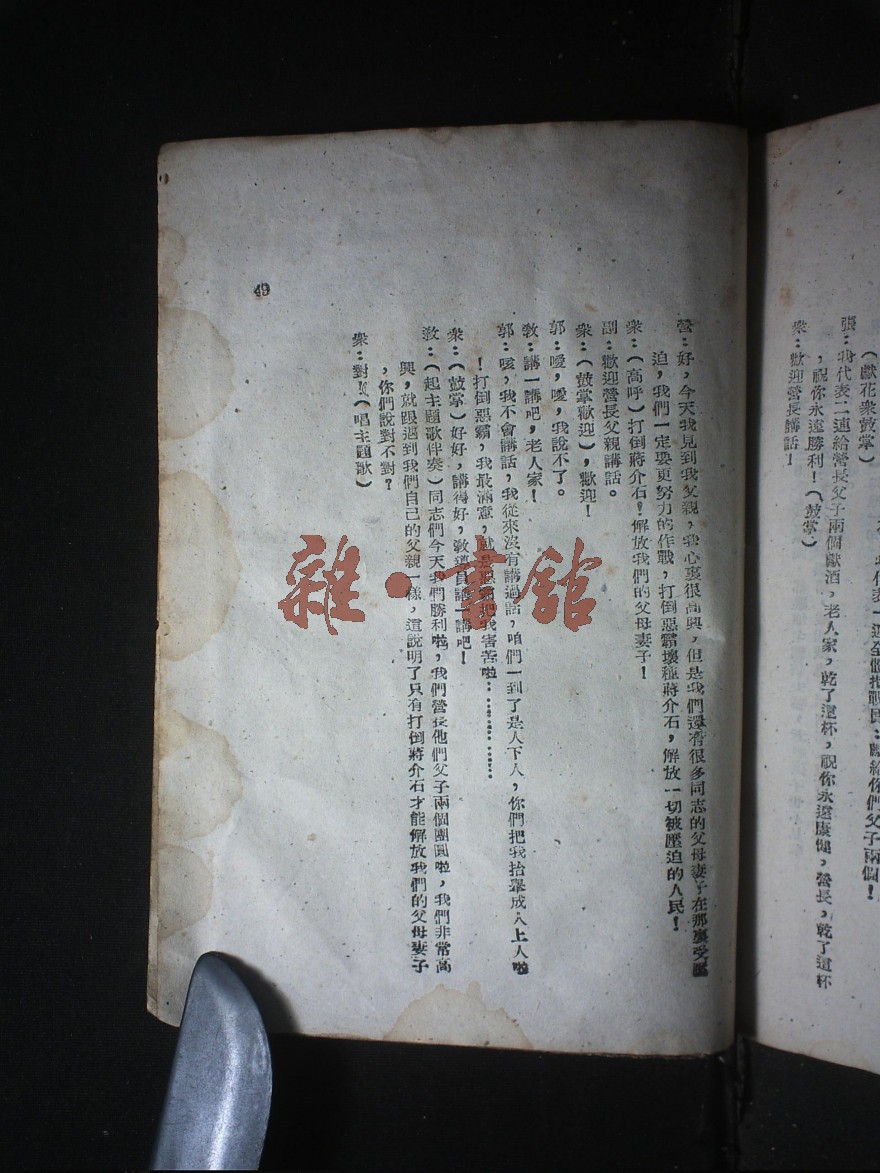 （獻花衆鼓掌）
張：我代表二連給營長父子兩個獻酒，老人家，乾了這杯，祝你永遠康健，營長，乾了這杯
，祝你永遠勝利！（鼓掌）
衆：歡迎營長講話！
營：好，今天我見到我父親，我心裏很高興，但是我們還有很多同志的父母妻子在那裏受壓
迫，我們一定要更努力的作戰，打倒惡霸壞種蔣介石，解放一切被壓迫的人民！
衆：（高呼）打倒蔣介石！解放我們的父母妻子！
副：歡迎營長父親講話。
衆：（鼓掌歡迎），歡迎！
郭：噯，噯，我說不了。
敎：講一講吧，老人家！
郭：咳，我不會講話，我從來沒有講過話，咱們一到了是人下人，你們把我抬舉成人上人啦
！打倒惡霸，我最滿意，就是惡霸把我害苦啦………………
衆：（鼓掌）好好，講得好，敎導員講一講吧！
敎：（起主題歌伴奏）同志們今天我們勝利啦，我們營長他們父子兩個團圓啦，我們非常高
興，就跟遇到我們自己的父親一樣，這說明了只有打倒蔣介石才能解放我們的父母妻子
，你們說對不對？
衆：對！（唱主題歌）
49
雜·書館